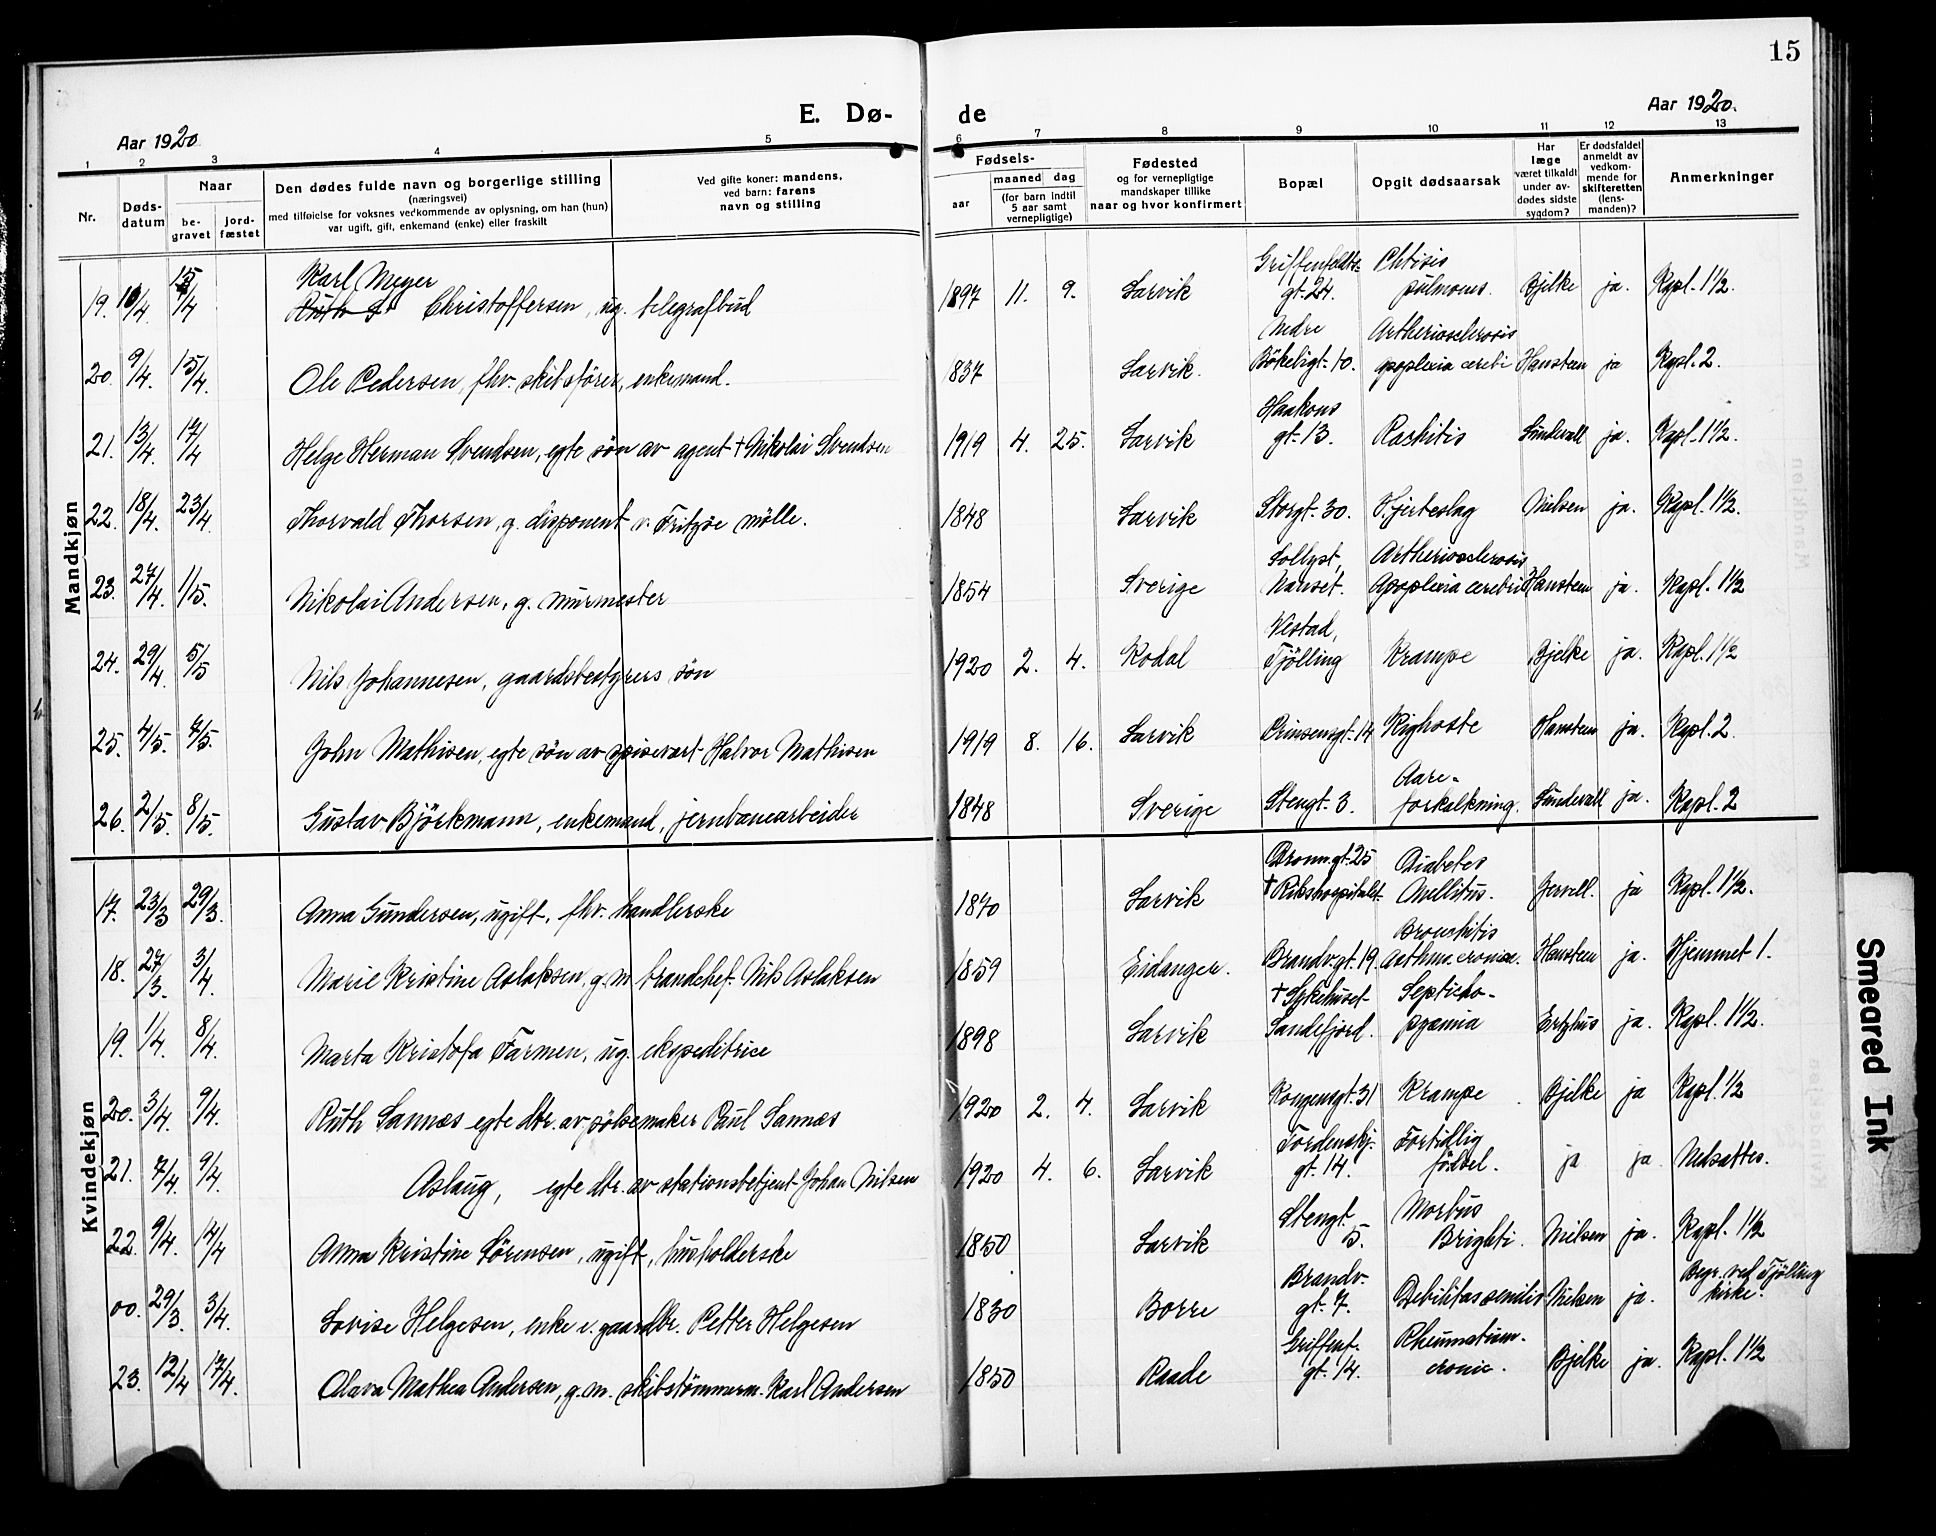 15
E. Dø- de
Aar 1920
Aar 1920.
1 2 3 4 5 6 7 8 9 10 11 12 13
Nr.
Døds-
datum
Naar
be-
gravet
jord-
fæstet
Den dødes fulde navn og borgerlige stilling
(næringsvei)
med tilføielse for voksnes vedkommende av oplysning, om han (hun)
var ugift, gift, enkemand (enke) eller fraskilt
Ved gifte koner: mandens,
ved barn: farens
navn og stilling
Fødsels-
aar
maaned dag
(for barn indtil
5 aar samt
vernepligtige)
Fødested
og for vernepligtige
mandskaper tillike
naar og hvor konfirmert
Bopæl
Opgit dødsaarsak
Har
læge
været tilkaldt
under av-
dødes sidste
sygdom?
Er dødsfaldet
anmeldt av
vedkom-
mende for
skifteretten
(lens-
manden)?
Anmerkninger
Mandkjøn
Karl Meyer Griffenfeldts- Chtisis
19. 10/4. 15/4 Ruth S Christoffersen, ug. telegrafbud 1897 11. 9. Larvik gt. 24. pulmons. Bjelke ja. Kapl. 1 1/2.
Nedre Artheriosclerosis
20. 9/4. 15/4. Ole Pedersen, fhv. skibsfører, enkemand. 1837 Larvik. Bökeligt. 10. apoplexia cerebi Hansteen ja Kapl. 2.
Haakons
21. 13/4. 17/4 Helge Herman Svendsen, egte søn av agent † Nikolai Svendsen 1919 4. 25. Larvik gt. 13. Raskitis Sundevall ja. Kapl. 1 1/2.
22. 18/4. 23/4. Thorvald Thorsen, g. disponent v. Fritzøe mölle. 1848 Larvik Storgt. 30. Hjerteslag Nielsen ja. Kapl. 1 1/2.
Sollyst, Artheriosclerosis
23. 27/4. 1/5. Nikolai Andersen, g. murmester 1854 Sverige Nanset. Apoplexia cerebri Hansteen ja. Kapl. 1 1/2
Vestad,
24. 29/4. 5/5 Nils Johannesen, gaardsbestyrers søn 1920 2. 4. Kodal Tjölling Krampe Bjelke ja. Kapl. 1 1/2
25. 4/5. 7/5. John Mathisen, egte søn av spisevært Halvor Mathisen 1919 8. 16. Larvik Prinsensgt. 14 Kighoste Hansteen ja. Kapl. 2.
Aare-
26. 2/5. 8/5. Gustav Björkmann, enkemand, jernbanearbeider 1848 Sverige Stengt. 3. forkalkning. Sundevall ja. Kapl. 2
Kvindekjøn
Bronn.gt. 25 Diabetes
17. 23/3 29/3. Anna Gundersen, ugift, fhv. handlerske 1870 Larvik † Rikshospitalet Mellitus. Jervell. ja Kapl. 1 1/2.
Bronshitis
18. 27/3. 3/4. Marie Kristine Aslaksen, g. m. brandchef. Nils Aslaksen 1859 Eidanger. Brandv.gt. 19. Asthma cronica. Hansteen ja. Hjemmet 1.
† Sykehuset Septicho-
19. 1/4. 8/4. Marta Kristofa Farmen, ug. ekspeditrice 1898 Larvik Sandefjord. pyæmia ja. Kapl. 1 1/2.
20. 3/4. 9/4. Ruth Sannæs egte dtr. av pölsemaker Paul Sannæs 1920 2. 4. Larvik Kongensgt. 31 Krampe Bjelke ja Kapl. 1/2
Tordenskj. Fortidlig
21. 7/4. 9/4. Aslaug, egte dtr. av stationsbetjent Johan Nilsen 1920 4. 6. Larvik gt. 14. födsel. ja ja Nedsattes.
Stengt. Morbus
22. 9/4. 14/4 Anna Kristine Sörensen, ugift, husholderske 1850 Larvik 5. Brighti. Nielsen ja. Kapl. 1 1/2
Brandv. Begr. ved Tjölling
00. 29/3. 3/4. Lovise Helgesen, enke e. gaardbr. Petter Helgesen 1830 Borre gt. 7. Debilitas senilis Nielsen ja. kirke.
Griffenf. Rheumatism.
23. 12/4 17/4. Olava Mathea Andersen, g. m. skibstømmerm. Karl Andersen 1850 Raade gt. 14. cronic. Bjelke ja. Kapl. 1 1/2
Smeared Ink